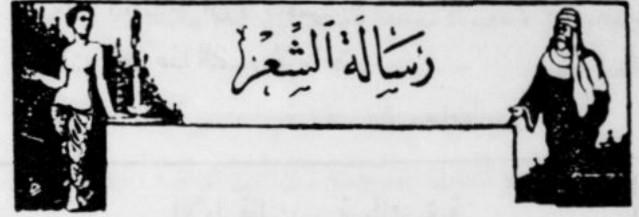 رِسَالَة الشِّعْر